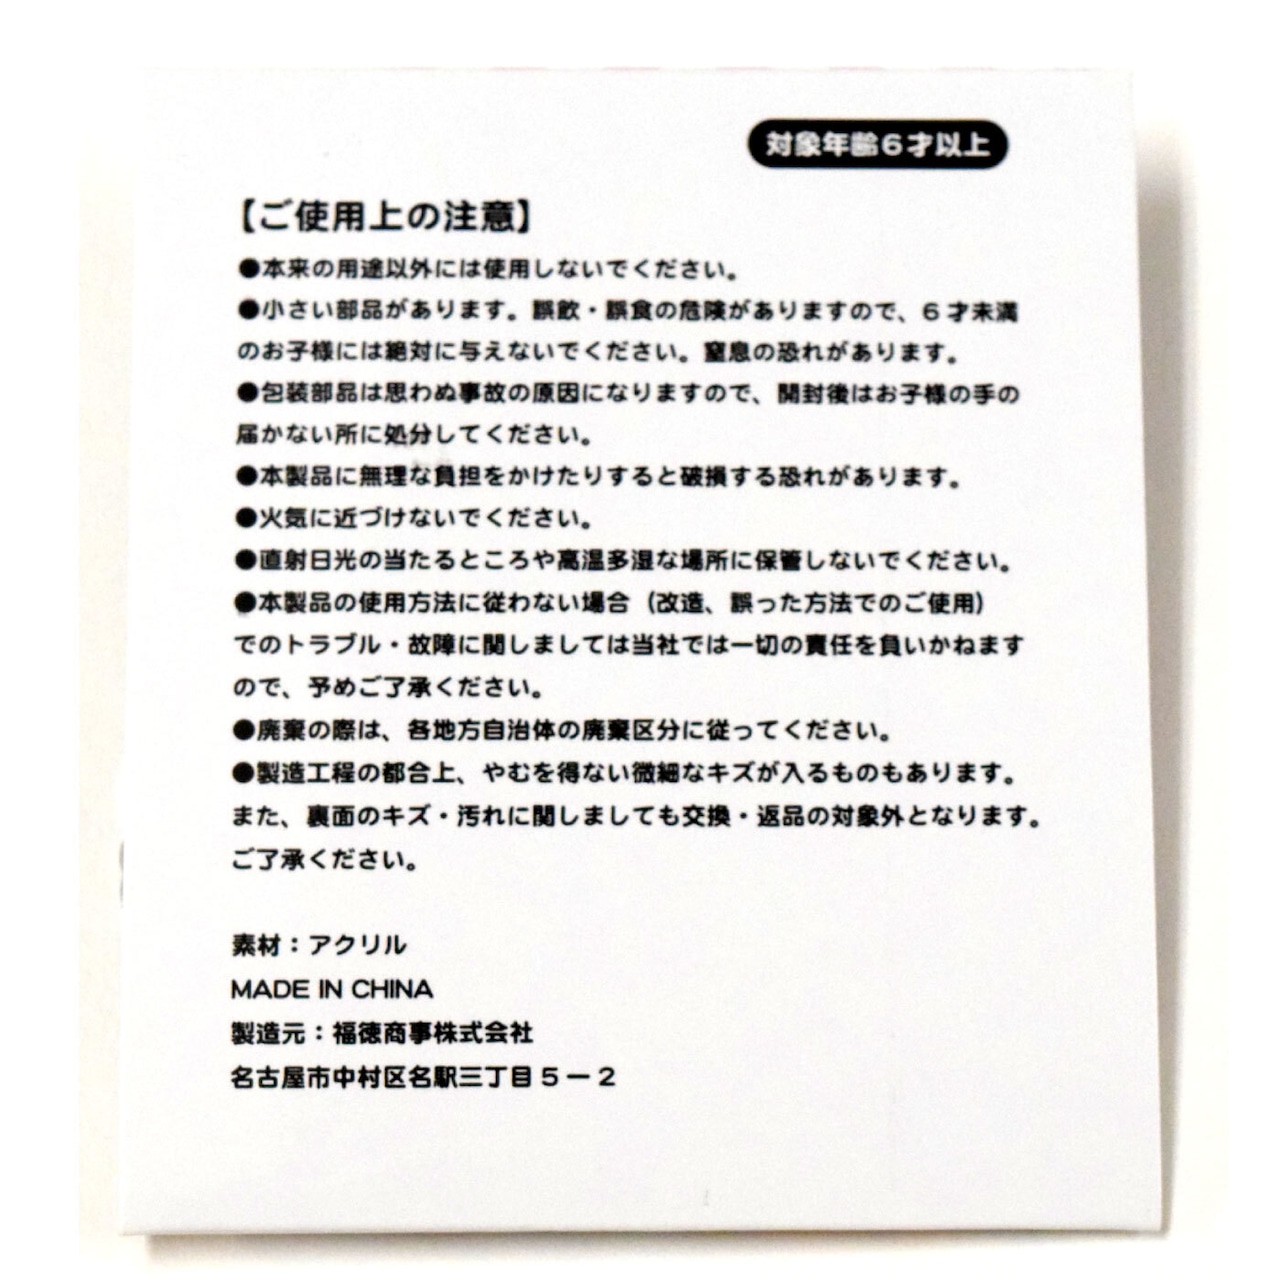 対象年齢6才以上
【ご使用上の注意】
●本来の用途以外には使用しないでください。
●小さい部品があります。誤飲・誤食の危険がありますので、6才未満
のお子様には絶対に与えないでください。窒息の恐れがあります。
●包装部品は思わぬ事故の原因になりますので、開封後はお子様の手の
届かない所に処分してください。
●本製品に無理な負担をかけたりすると破損する恐れがあります。
●火気に近づけないでください。
●直射日光の当たるところや高温多湿な場所に保管しないでください。
●本製品の使用方法に従わない場合（改造、誤った方法でのご使用）
でのトラブル・故障に関しましては当社では一切の責任を負いかねます
ので、予めご了承ください。
●廃棄の際は、各地方自治体の廃棄区分に従ってください。
●製造工程の都合上、やむを得ない微細なキズが入るものもあります。
また、裏面のキズ・汚れに関しましても交換・返品の対象外となります。
ご了承ください。
素材：アクリル
MADE IN CHINA
製造元：福徳商事株式会社
名古屋市中村区名駅三丁目5－2